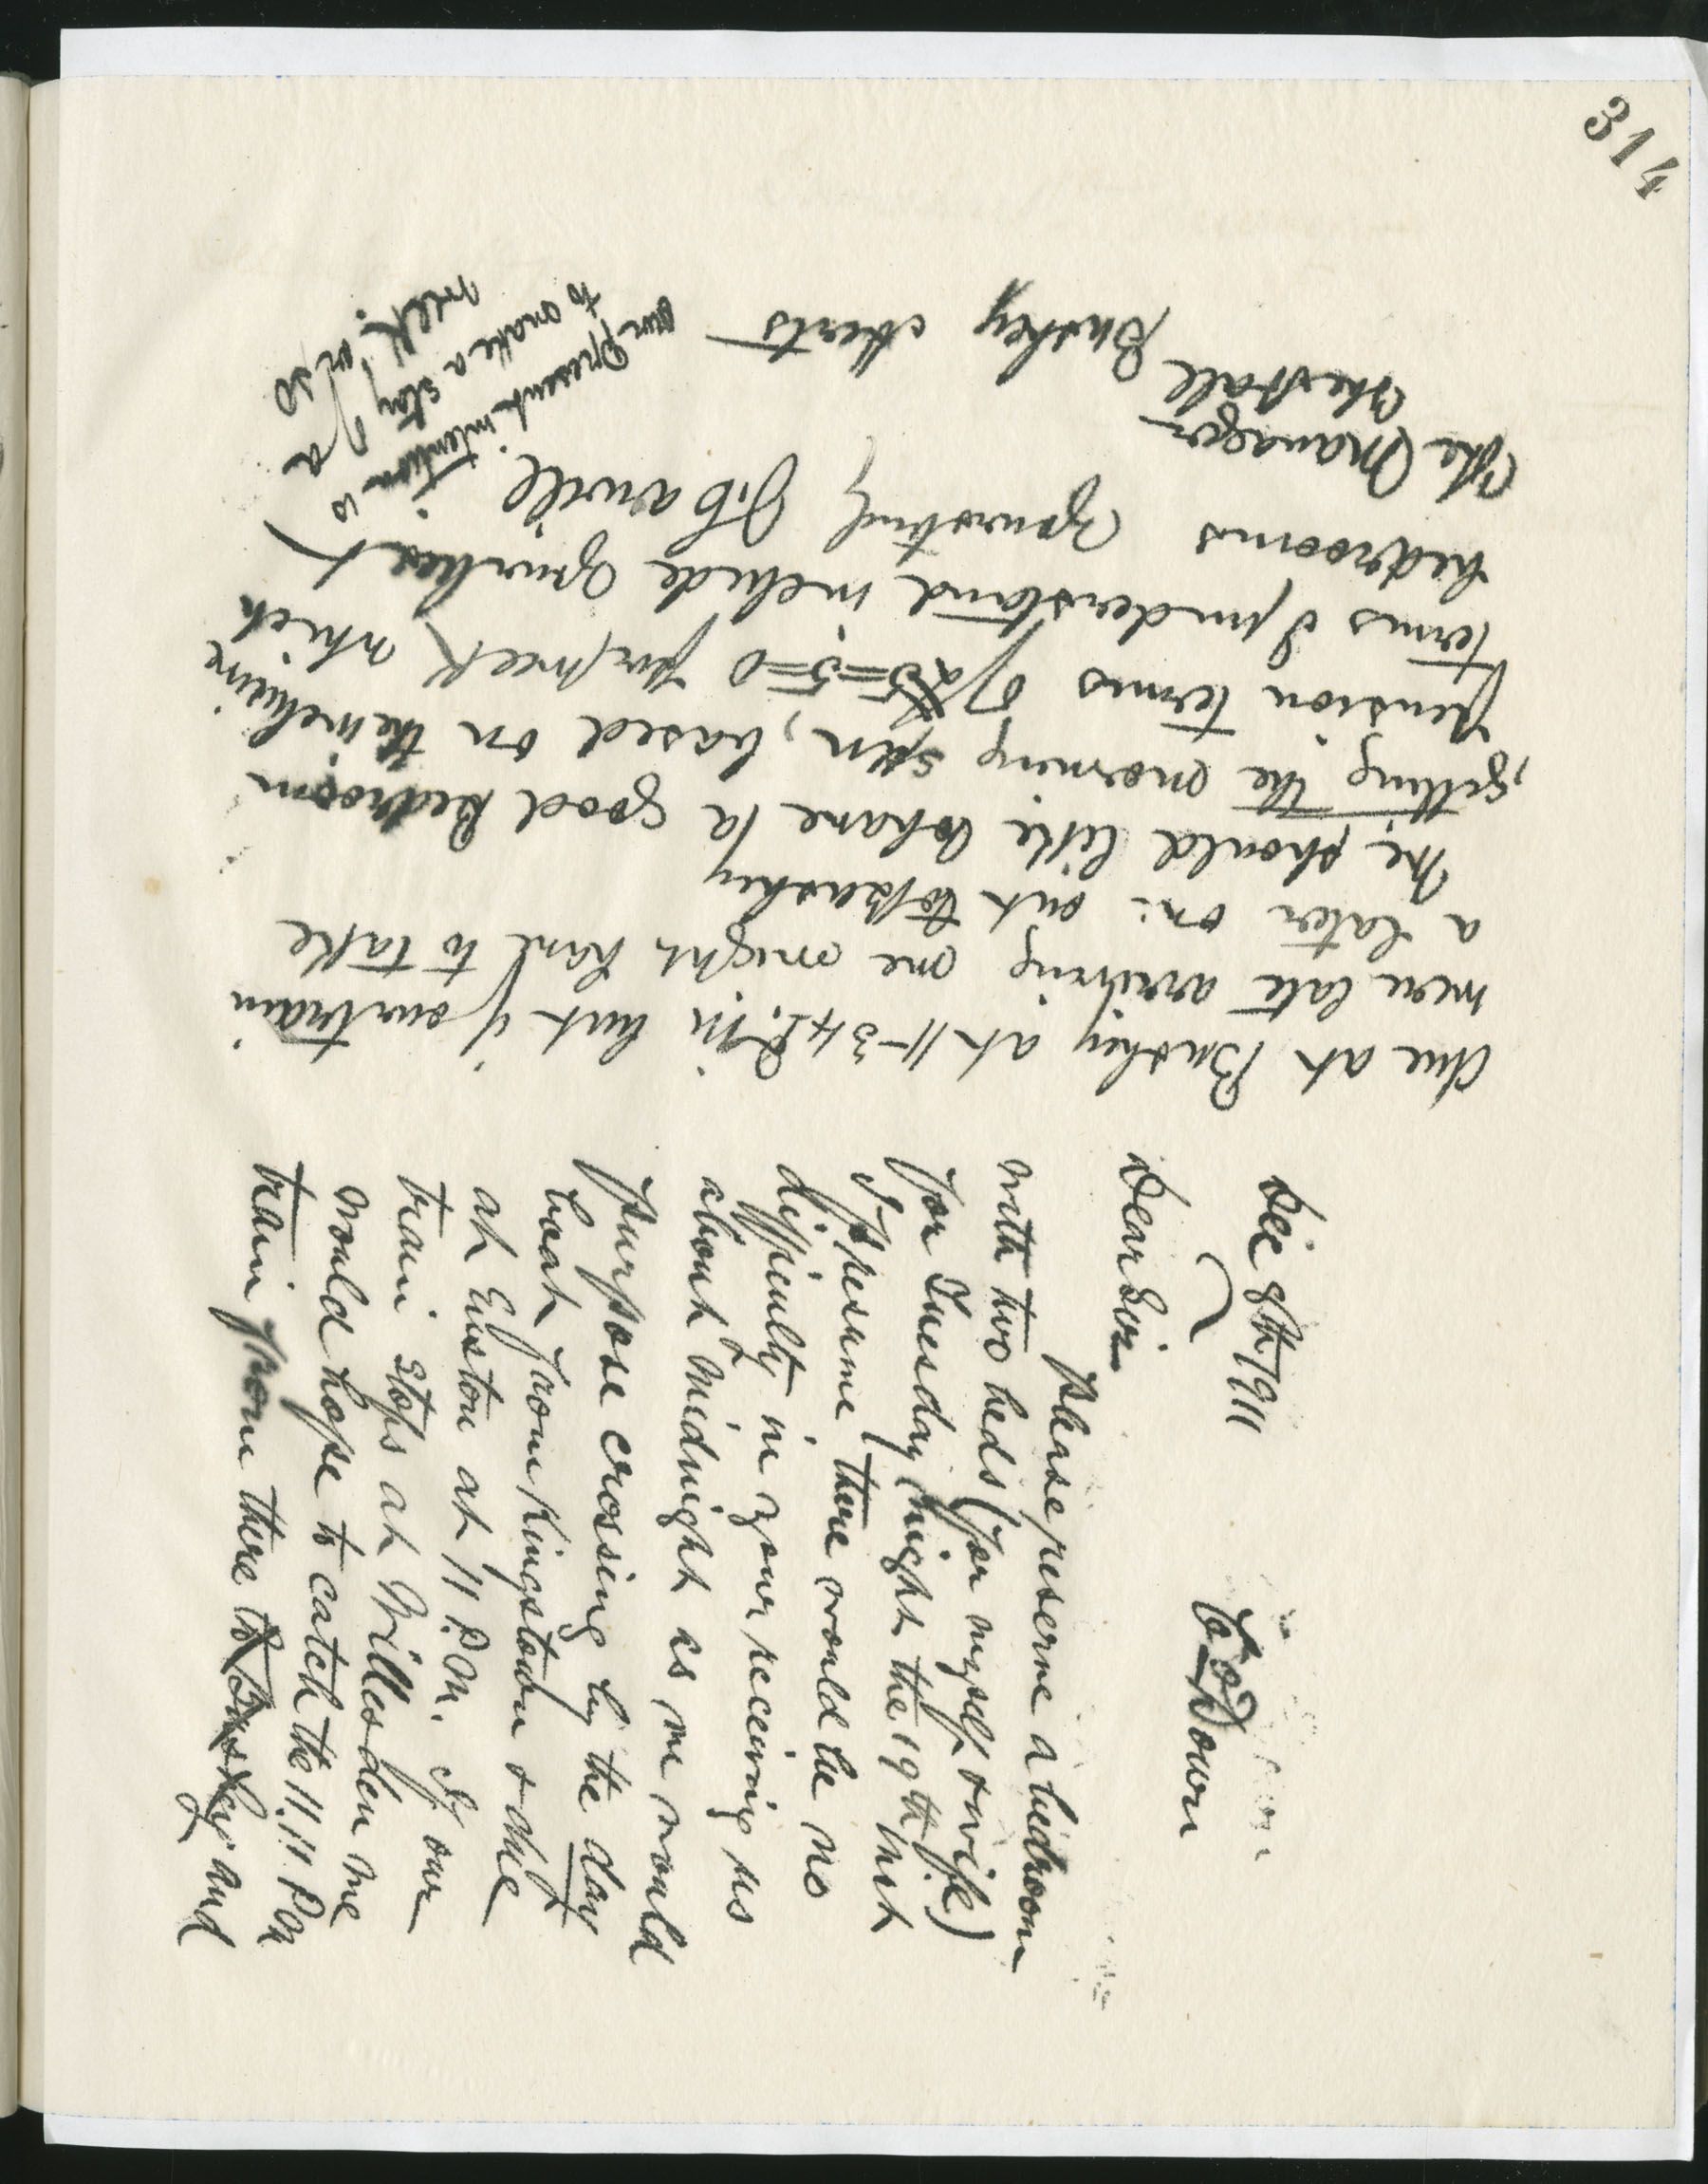 314
Co Down
Dec 8th 1911
Dear Sir
Please reserve a bedroom
with two beds (for myself & wife)
for Tuesday night the 19th. but
I presume there would be no
difficulty in your receiving us
about midnight as we would
purpose crossing by the day
boat from Kingstown & due
at Euston at 11 P.M. If our
train stops at Willesden we
would hope to catch the 11.11 PM
train from there to Bushey and
due at Bushey at 11-34 P.M. but if our train
were late arriving we might have to take
a later one out to Bushey
We should like to have a good bedroom
getting the morning sun, based on the inclusive
pension terms of £5=5=0 per week which
terms I understand include
bedrooms Yours truly
The Manager
Bushey Herts
our present intention is
to make a stay of a
week or so